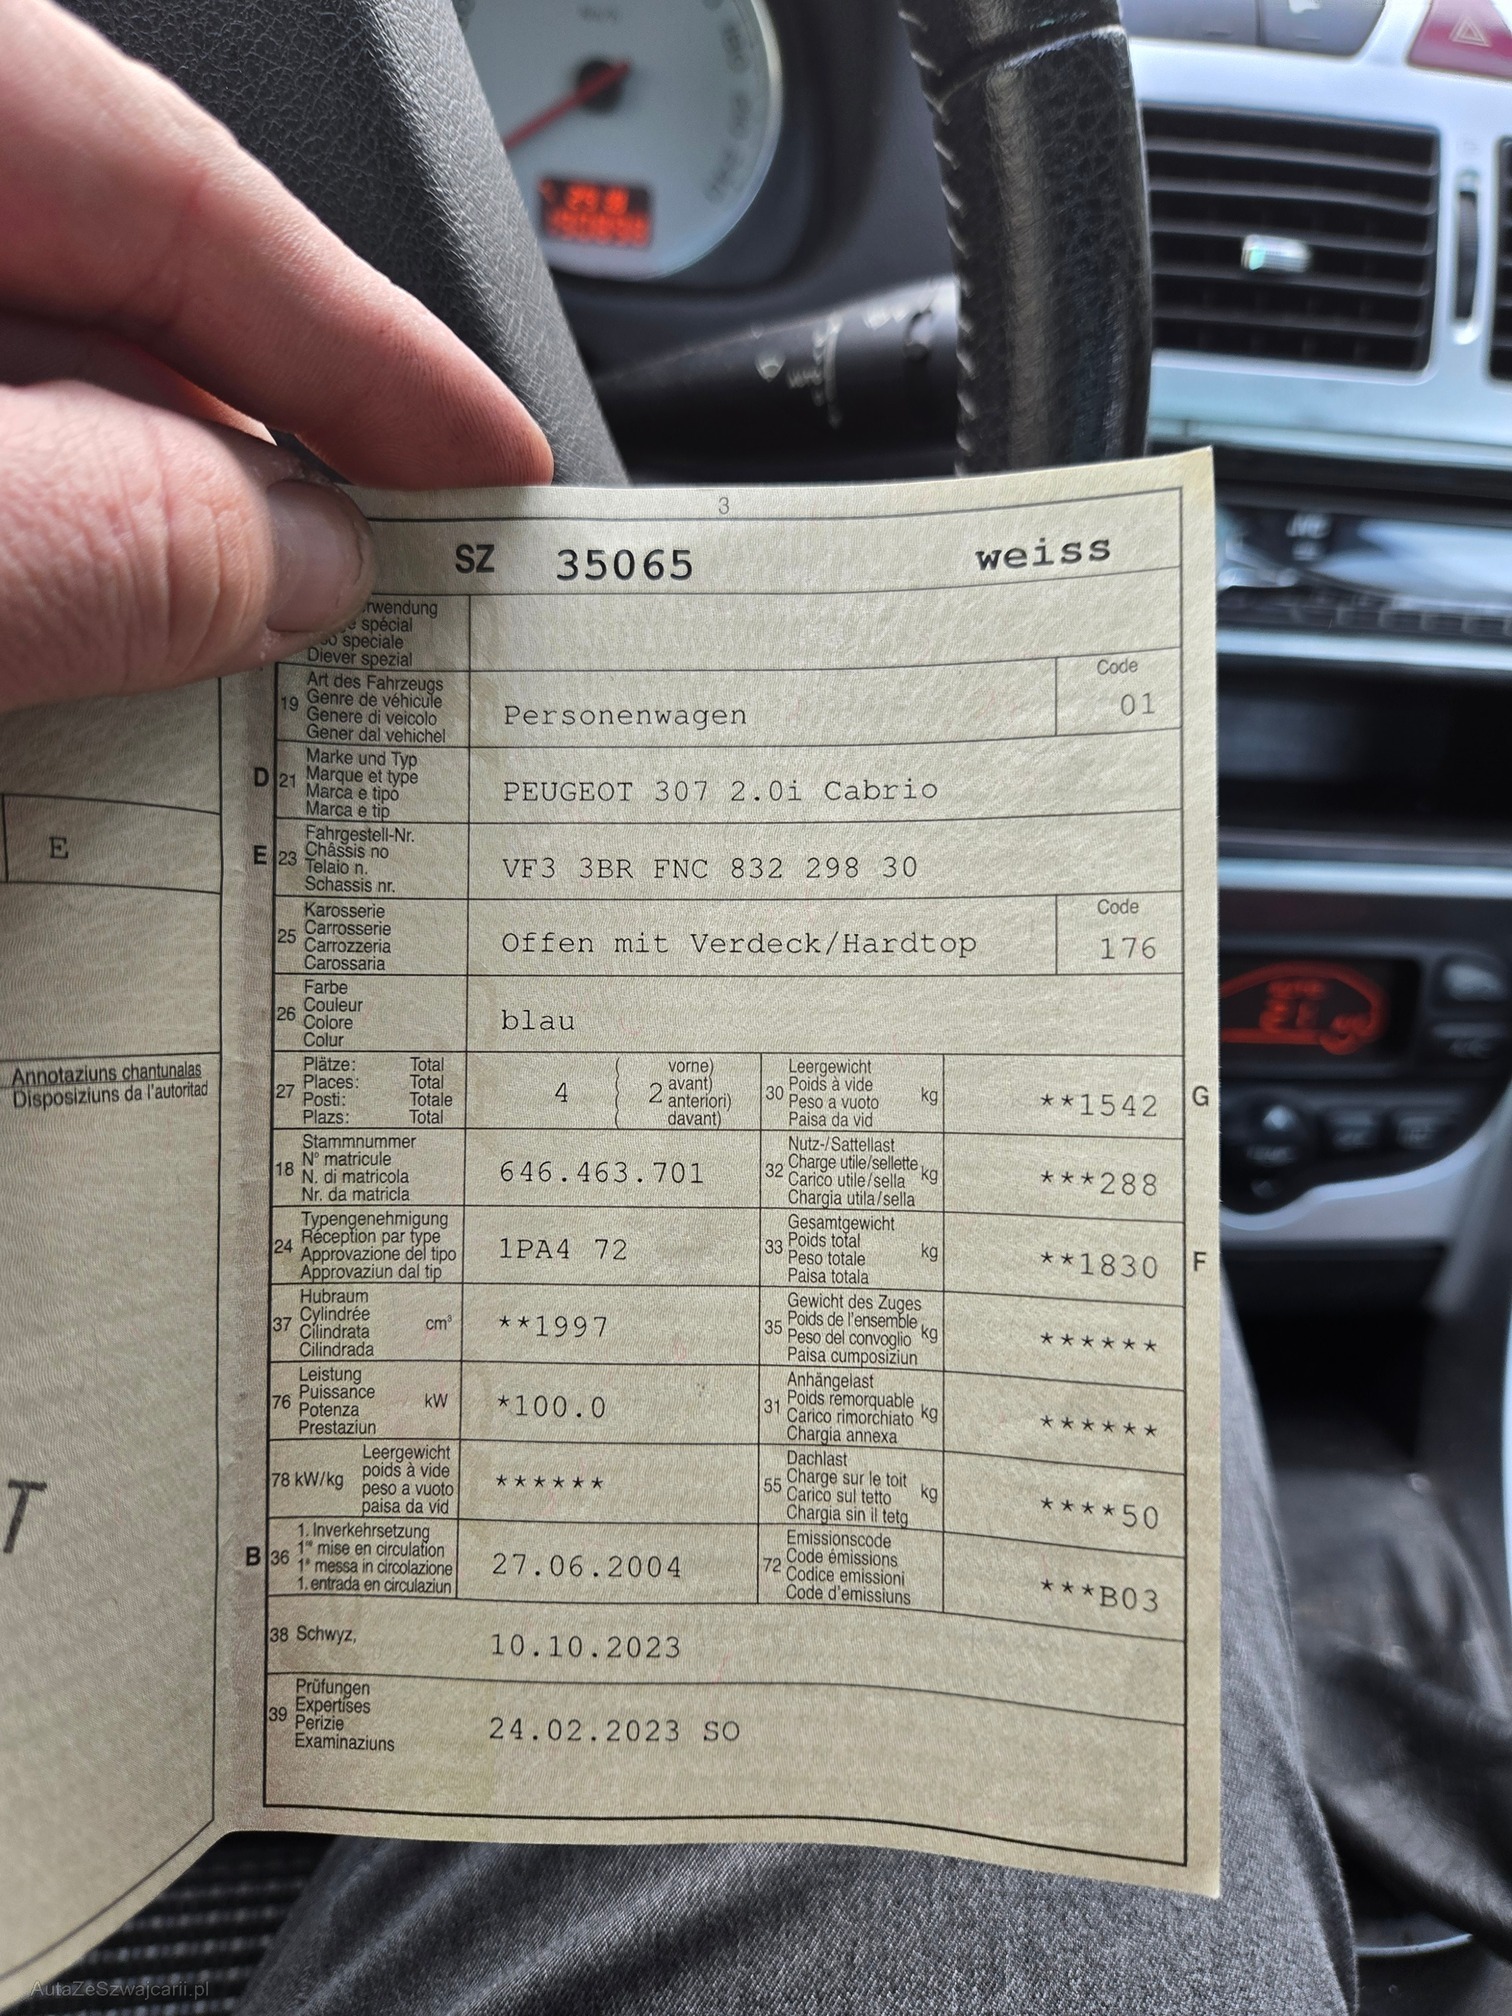 3
SZ 35065 weiss
rwendung
spécial
speciale
Diever spezial
19 Art des Fahrzeugs
Genre de véhicule
Genere di veicolo
Gener dal vehichel
Personenwagen
Code
01
D 21 Marke und Typ
Marque et type
Marca e tipo
Marca e tip
PEUGEOT 307 2.0i Cabrio
E 23 Fahrgestell-Nr.
Châssis no
Telaio n.
Schassis nr.
VF3 3BR FNC 832 298 30
25 Karosserie
Carrosserie
Carrozzeria
Carossaria
Offen mit Verdeck/Hardtop
Code
176
26 Farbe
Couleur
Colore
Colur
blau
27 Plätze: Total
Places: Total
Posti: Totale
Plazs: Total
4 ( 2 vorne)
avant)
anteriori)
davant)
30 Leergewicht
Poids à vide
Peso a vuoto
Paisa da vid
kg
**1542 G
18 Stammnummer
N° matricule
N. di matricola
Nr. da matricla
646.463.701
32 Nutz-/Sattellast
Charge utile/sellette
Carico utile/sella
Chargia utila/sella
kg
***288
24 Typengenehmigung
Réception par type
Approvazione del tipo
Approvaziun dal tip
1PA4 72
33 Gesamtgewicht
Poids total
Peso totale
Paisa totala
kg
**1830 F
37 Hubraum
Cylindrée
Cilindrata
Cilindrada
cm³
**1997
35 Gewicht des Zuges
Poids de l'ensemble
Peso del convoglio
Paisa cumposiziun
kg
******
76 Leistung
Puissance
Potenza
Prestaziun
kW
*100.0
31 Anhängelast
Poids remorquable
Carico rimorchiato
Chargia annexa
kg
******
78 kW/kg
Leergewicht
poids à vide
peso a vuoto
paisa da vid
******
55 Dachlast
Charge sur le toit
Carico sul tetto
Chargia sin il tetg
kg
****50
B 36 1. Inverkehrsetzung
1re mise en circulation
1a messa in circolazione
1. entrada en circulaziun
27.06.2004
72 Emissionscode
Code émissions
Codice emissioni
Code d'emissiuns
***B03
38 Schwyz,
10.10.2023
39 Prüfungen
Expertises
Perizie
Examinaziuns
24.02.2023 SO
E
Annotaziuns chantunalas
Disposiziuns da l'autoritad
T
AutaZeSzwajcarii.pl